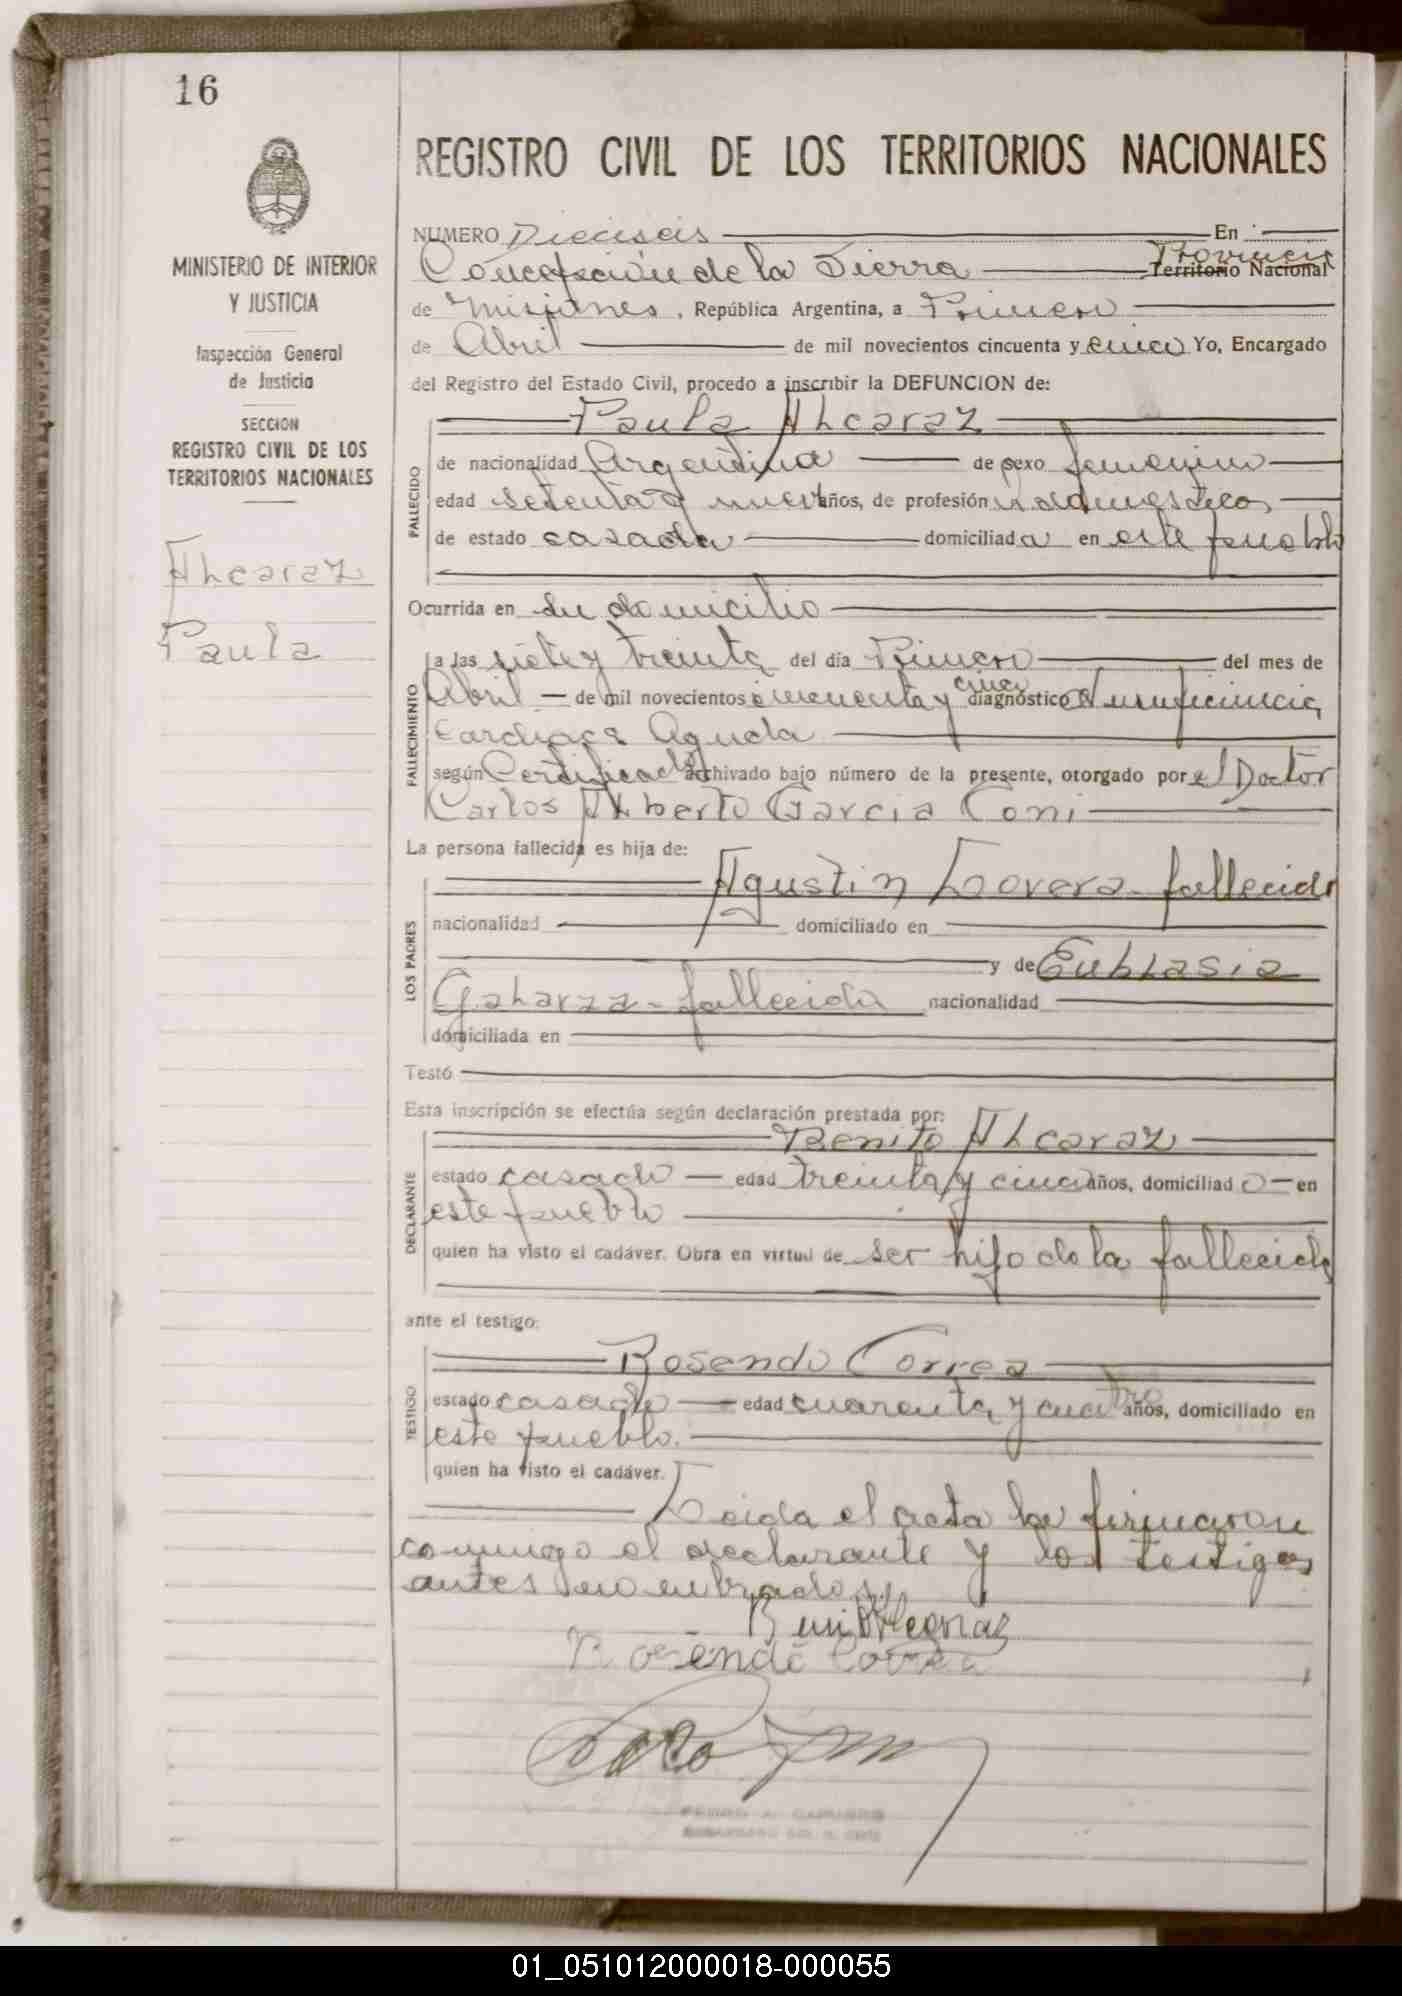 16
REGISTRO CIVIL DE LOS TERRITORIOS NACIONALES
MINISTERIO DE INTERIOR
Y JUSTICIA
Inspección General
de Justicia
SECCION
REGISTRO CIVIL DE LOS
TERRITORIOS NACIONALES
Alcaraz
Paula
NUMERO Dieciseis En
Concepción de la Sierra Provincia Territorio Nacional
de Misiones, República Argentina, a Primero
de Abril de mil novecientos cincuenta y cinco Yo, Encargado
del Registro del Estado Civil, procedo a inscribir la DEFUNCION de:
FALLECIDO
Paula Alcaraz
de nacionalidad Argentina de sexo femenino
edad setenta y nueve años, de profesión q. domesticos
de estado casada domiciliada en este pueblo
Ocurrida en su domicilio
FALLECIMIENTO
a las siete y treinta del día Primero del mes de
Abril de mil novecientos cincuenta y cinco diagnóstico Insuficiencia
Cardiaca Aguda
según Certificado archivado bajo número de la presente, otorgado por el Doctor
Carlos Alberto Garcia Coni
La persona fallecida es hija de:
LOS PADRES
Agustin Lovera - fallecido
nacionalidad domiciliado en
y de Eublasia
Galarza - fallecida nacionalidad
domiciliada en
Testó
Esta inscripción se efectúa según declaración prestada por:
DECLARANTE
Benito Alcaraz
estado casado edad treinta y cinco años, domiciliado en
este pueblo
quien ha visto el cadáver. Obra en virtud de ser hijo de la fallecida
ante el testigo:
TESTIGO
Rosendo Correa
estado casado edad cuarenta y cuatro años, domiciliado en
este pueblo.
quien ha visto el cadáver.
Leida el acta la firmaron
conmigo el declarante y los testigos
antes nombrados
Benito Alcaraz
Rosendo Correa
01_051012000018-000055